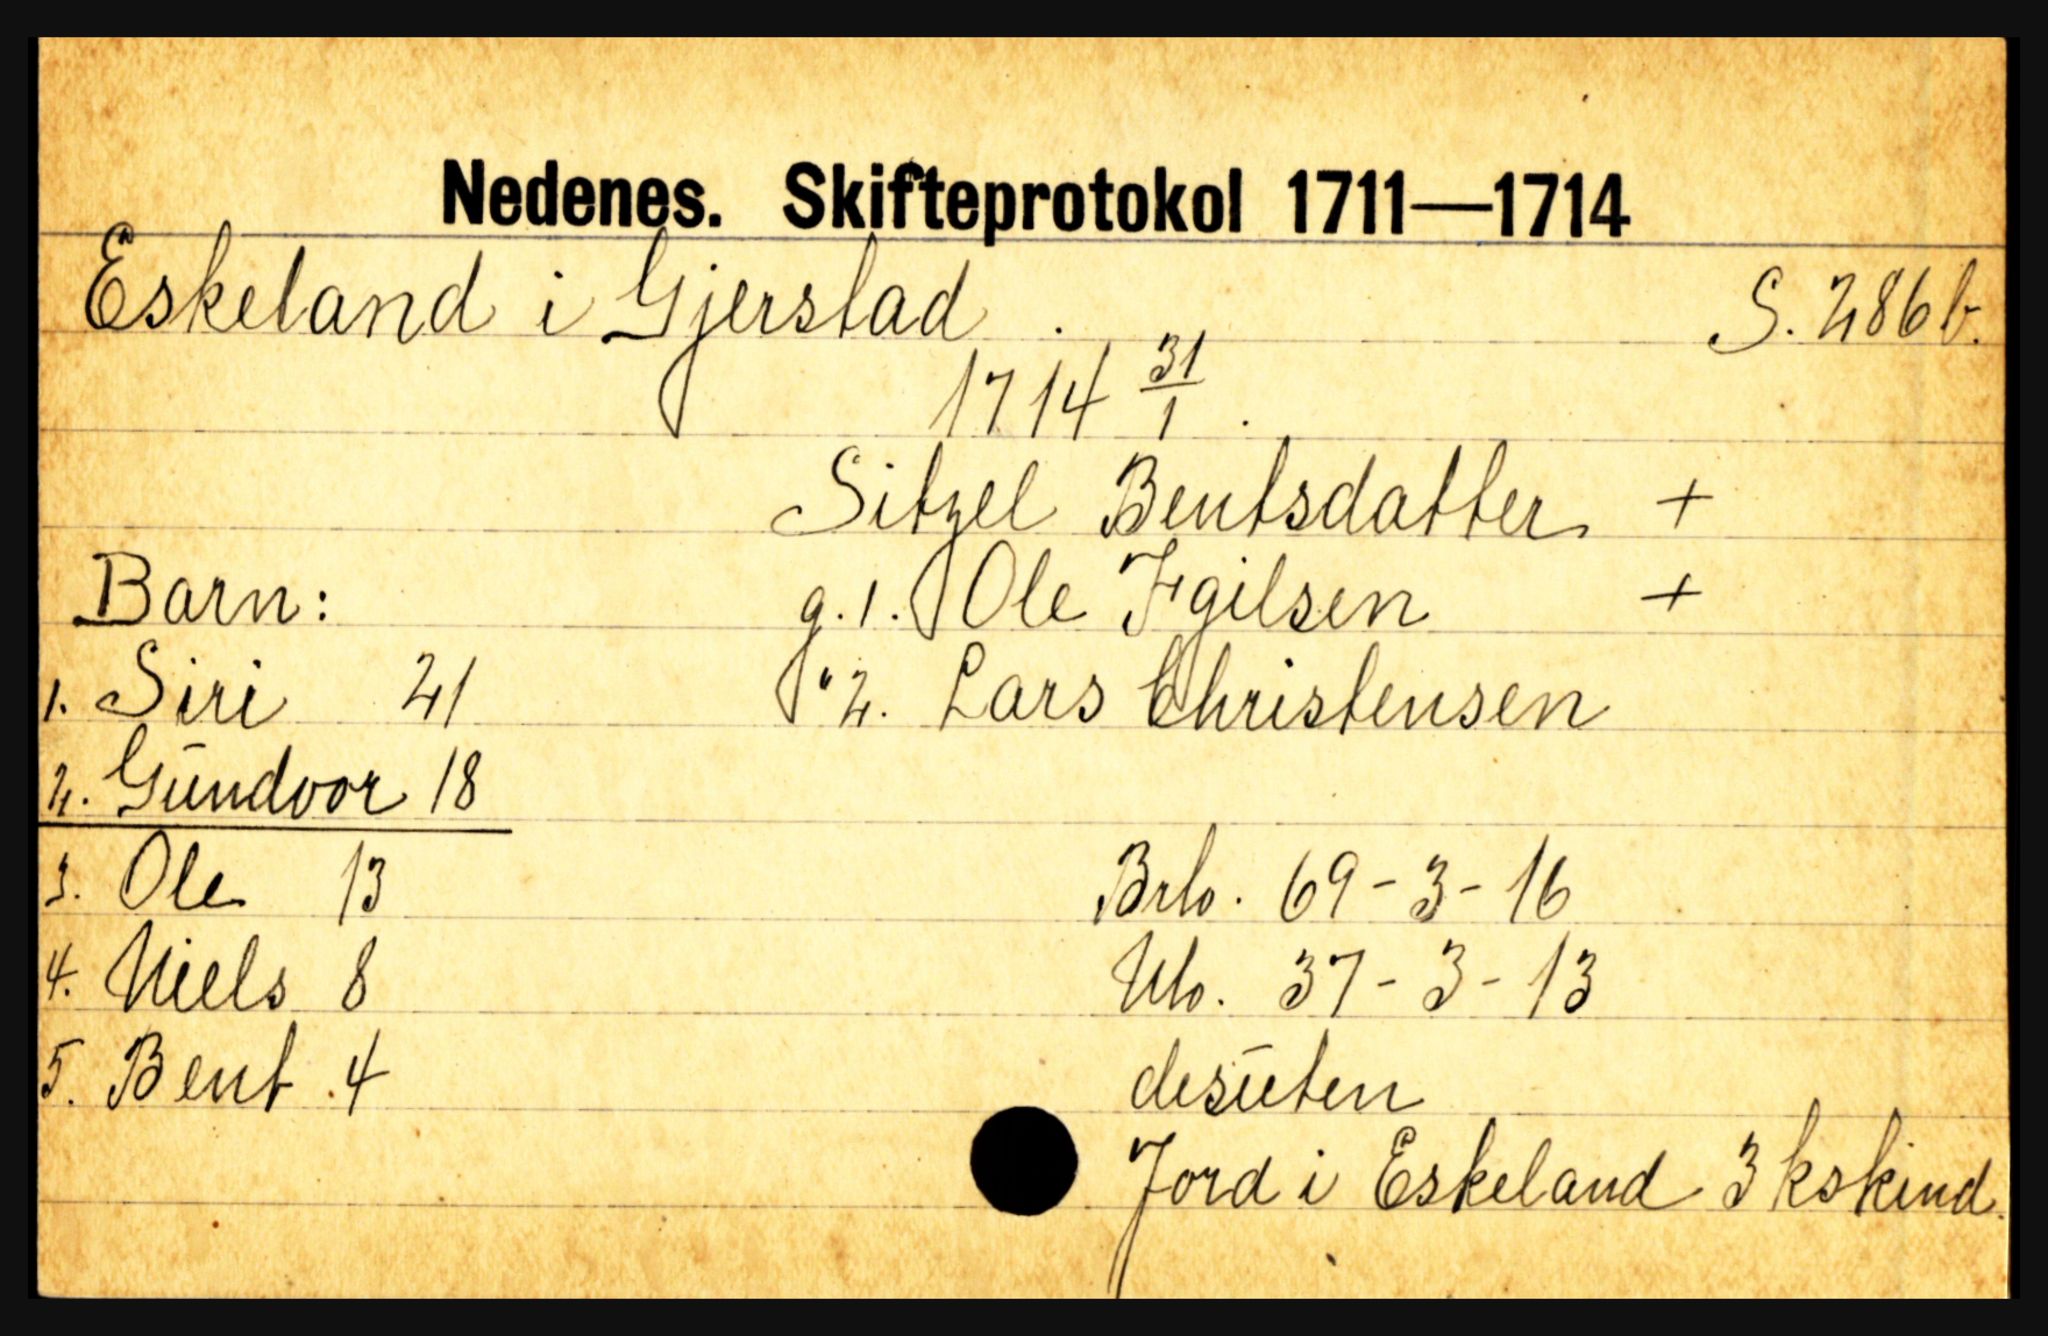 Nedenes. Skifteprotokol 1711—1714
Eskeland i Gjerstad. S. 286 b.
1714 31/1.
Sitzel Bentsdatter +
Barn: g. 1. Ole Igilsen +
1. Siri 21 " 2. Lars Christensen
2. Gūndvor 18
3. Ole 13 Brlo. 69-3-16
4. Niels 8 Nlo. 37-3-13
5. Bent 4 desūten
Jord i Eskeland 3 kskind.